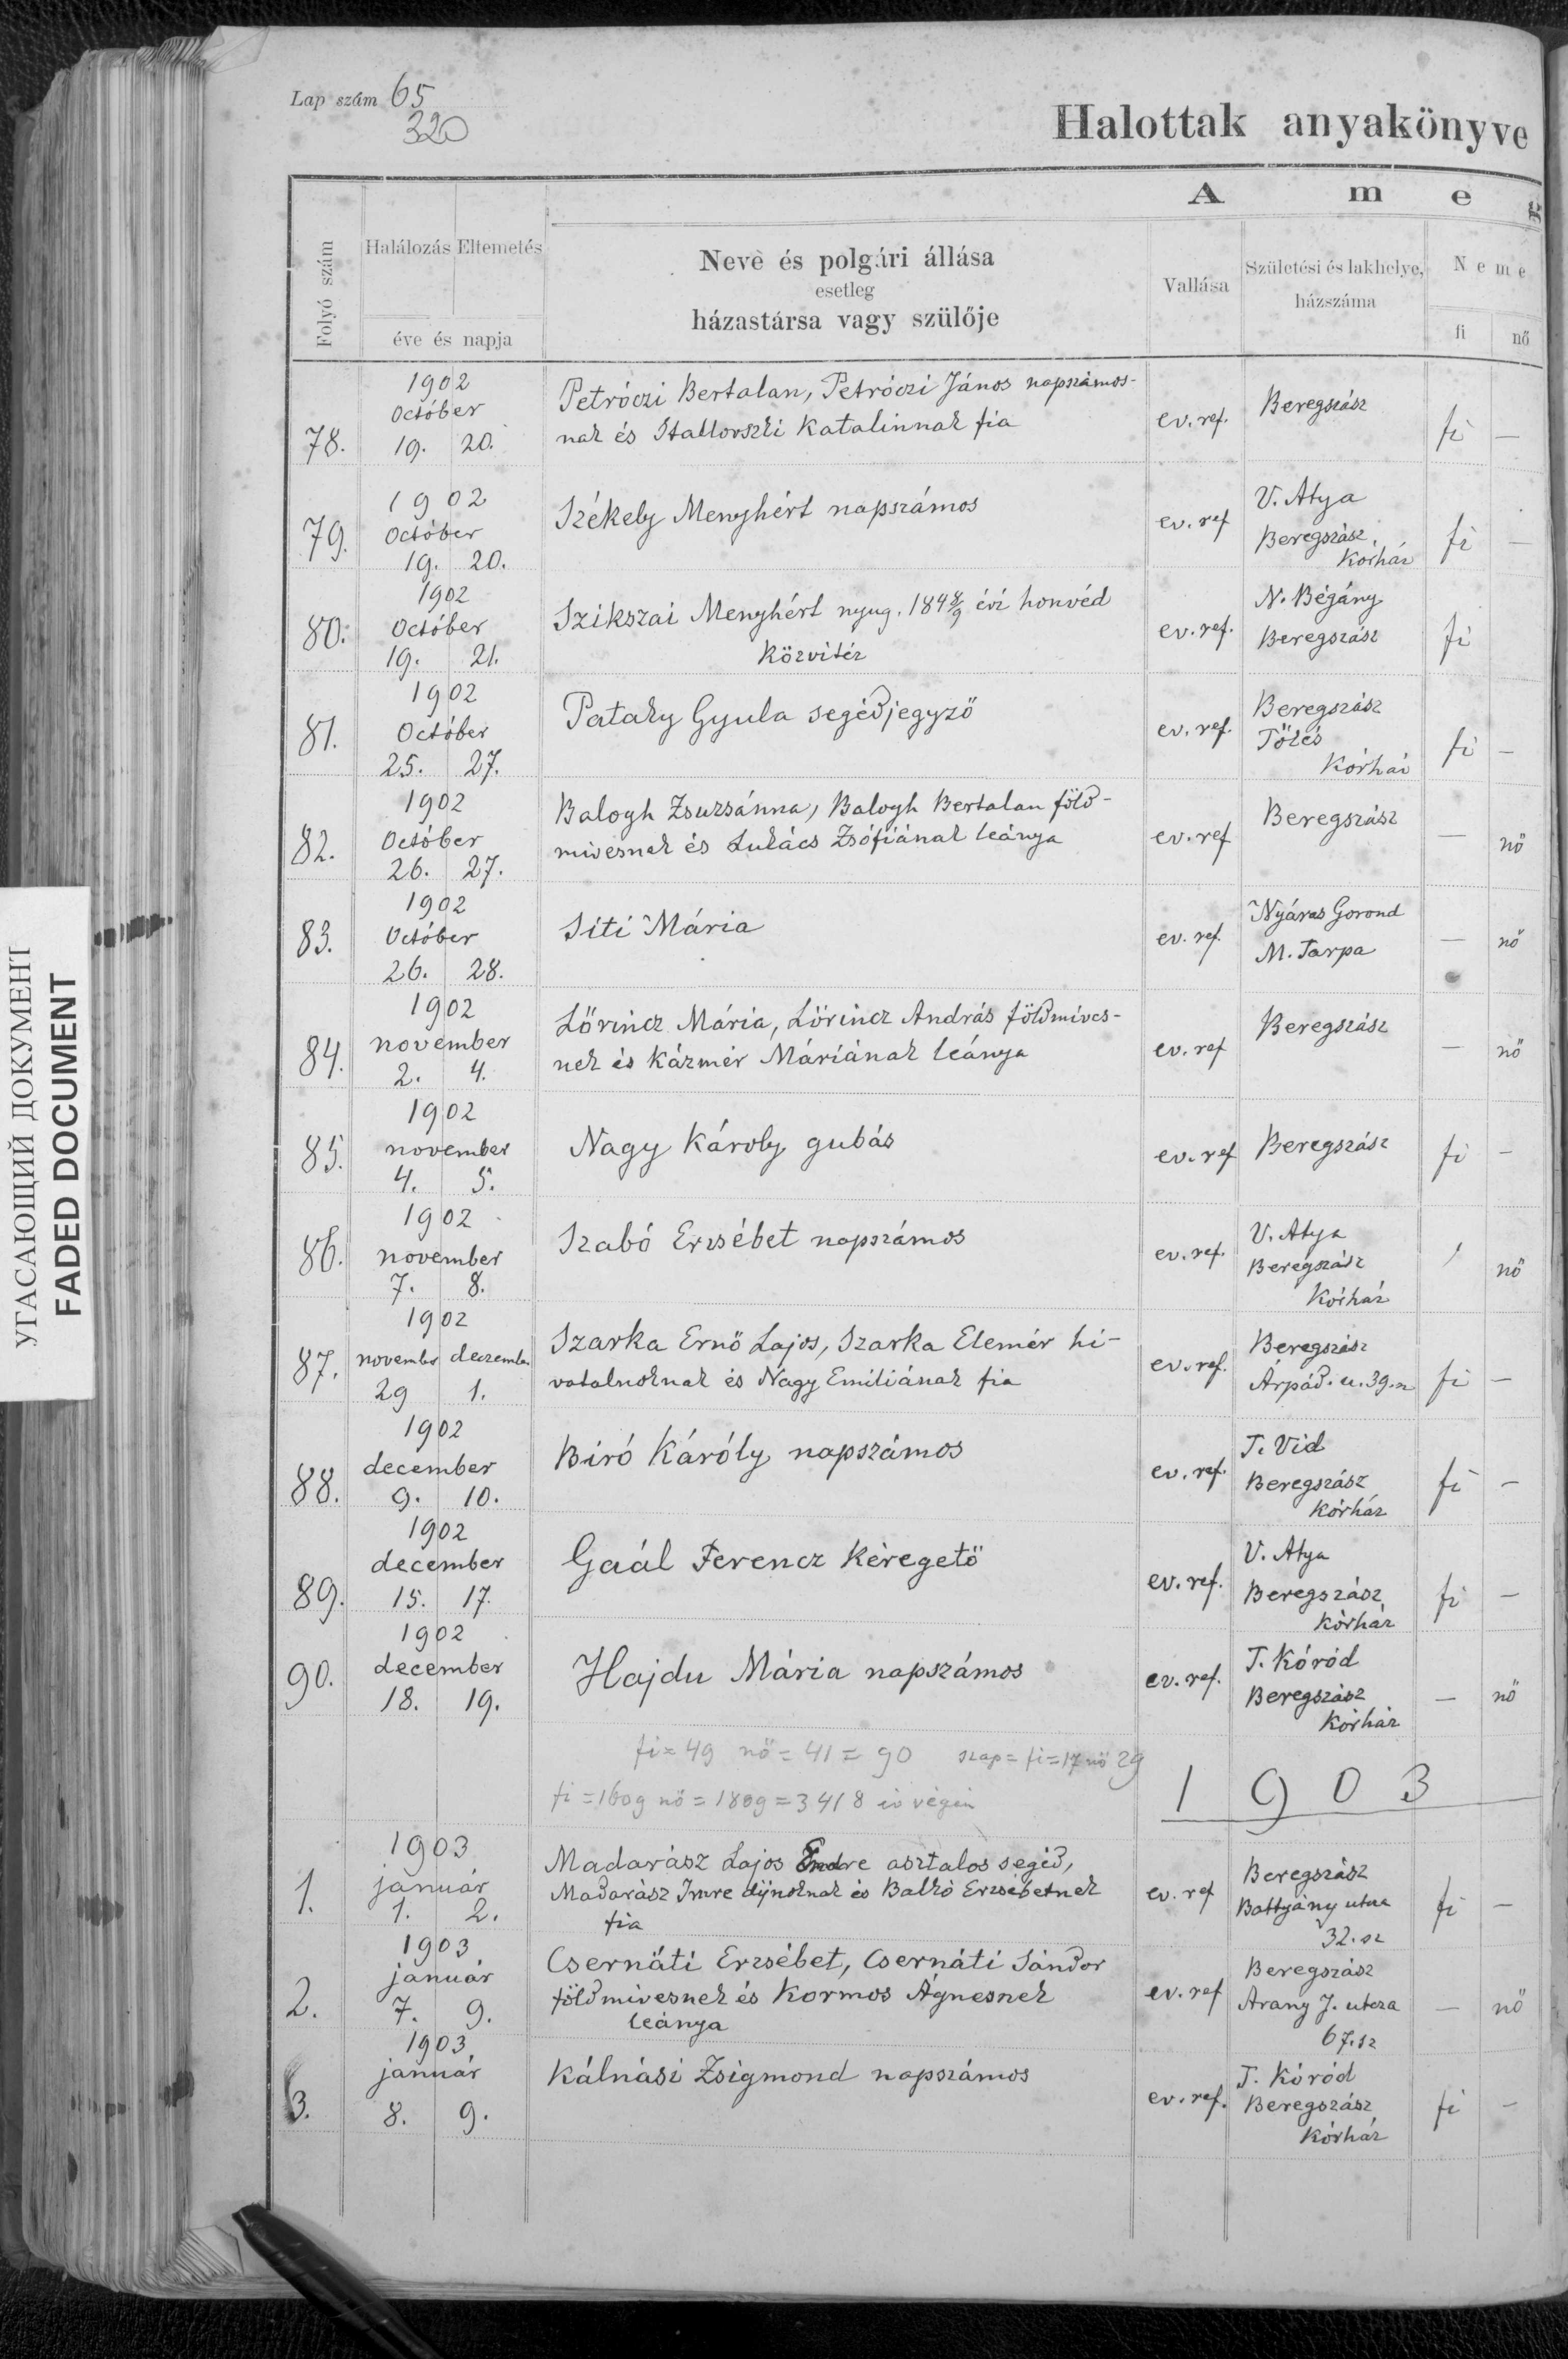 Lap szám 65
320
Halottak anyakönyve
A m e g
Folyó szám
Halálozás Eltemetés
éve és napja
Neve és polgári állása
esetleg
házastársa vagy szülője
Vallása
Születési és lakhelye,
házszáma
Neme
fi nő
78.
1902
Octóber
19. 20.
Petróczi Bertalan, Petróczi János napszámos-
nak és Katalinnak fia
ev. ref.
Beregszász
fi —
79.
1902
Octóber
19. 20.
Székely Menyhért napszámos
ev. ref
V. Atya
Beregszász
Korház
fi —
80.
1902
Octóber
19. 21.
Szikszai Menyhért nyug. 1848/9 évi honvéd
Közvitéz
ev. ref.
N. Bégány
Beregszász
fi
81.
1902
Octóber
25. 27.
Pataky Gyula segédjegyző
ev. ref.
Beregszász
Kórház
fi —
82.
1902
Octóber
26. 27.
Balogh Zsuzsánna, Balogh Bertalan föld-
mivesnek és Lukács Zsófiának leánya
ev. ref
Beregszász
— nő
83.
1902
Octóber
26. 28.
Siti Mária
ev. ref.
Nyáras Gorond
M. Tarpa
— nő
84.
1902
november
2. 4.
Lőrincz Mária, Lőrincz András földmives-
nek és Kázmér Máriának leánya
ev. ref
Beregszász
— nő
85.
1902
november
4. 5.
Nagy Károly gubás
ev. ref
Beregszász
fi —
86.
1902
november
7. 8.
Szabó Erzsébet napszámos
ev. ref.
V. Atya
Beregszász
Kórház
nő
87.
1902
november deczember
29 1.
Szarka Ernő Lajos, Szarka Elemér hi-
vatalnoknak és Nagy Emiliának fia
ev. ref.
Beregszász
Árpád. u. 39. sz
fi —
88.
1902
december
9. 10.
Biró Károly napszámos
ev. ref.
T. Vid
Beregszász
Kórház
fi —
89.
1902
december
15. 17.
Gaál Ferencz kéregető
ev. ref.
V. Atya
Beregszász
Kórház
fi —
90.
1902
december
18. 19.
Hajdu Mária napszámos
ev. ref.
T. Kóród
Beregszász
Kórház
— nő
fi = 49 nő = 41 = 90 szap = fi = 17 nő 29
fi = 1609 nő = 1809 = 3418 év végén
1903
1.
1903
január
1. 2.
Madarász Lajos Endre asztalos segéd,
Madarász Imre dijnoknak és Balkó Erzsébetnek
fia
ev. ref
Beregszász
Batthyány utcza
32. sz
fi —
2.
1903
január
7. 9.
Csernáti Erzsébet, Csernáti Sándor
földmivesnek és Kormos Ágnesnek
leánya
ev. ref
Beregszász
Arany J. utcza
67. sz
— nő
3.
1903
január
8. 9.
Kálnási Zsigmond napszámos
ev. ref.
T. Kóród
Beregszász
Kórház
fi —
УГАСАЮЩИЙ ДОКУМЕНТ
FADED DOCUMENT